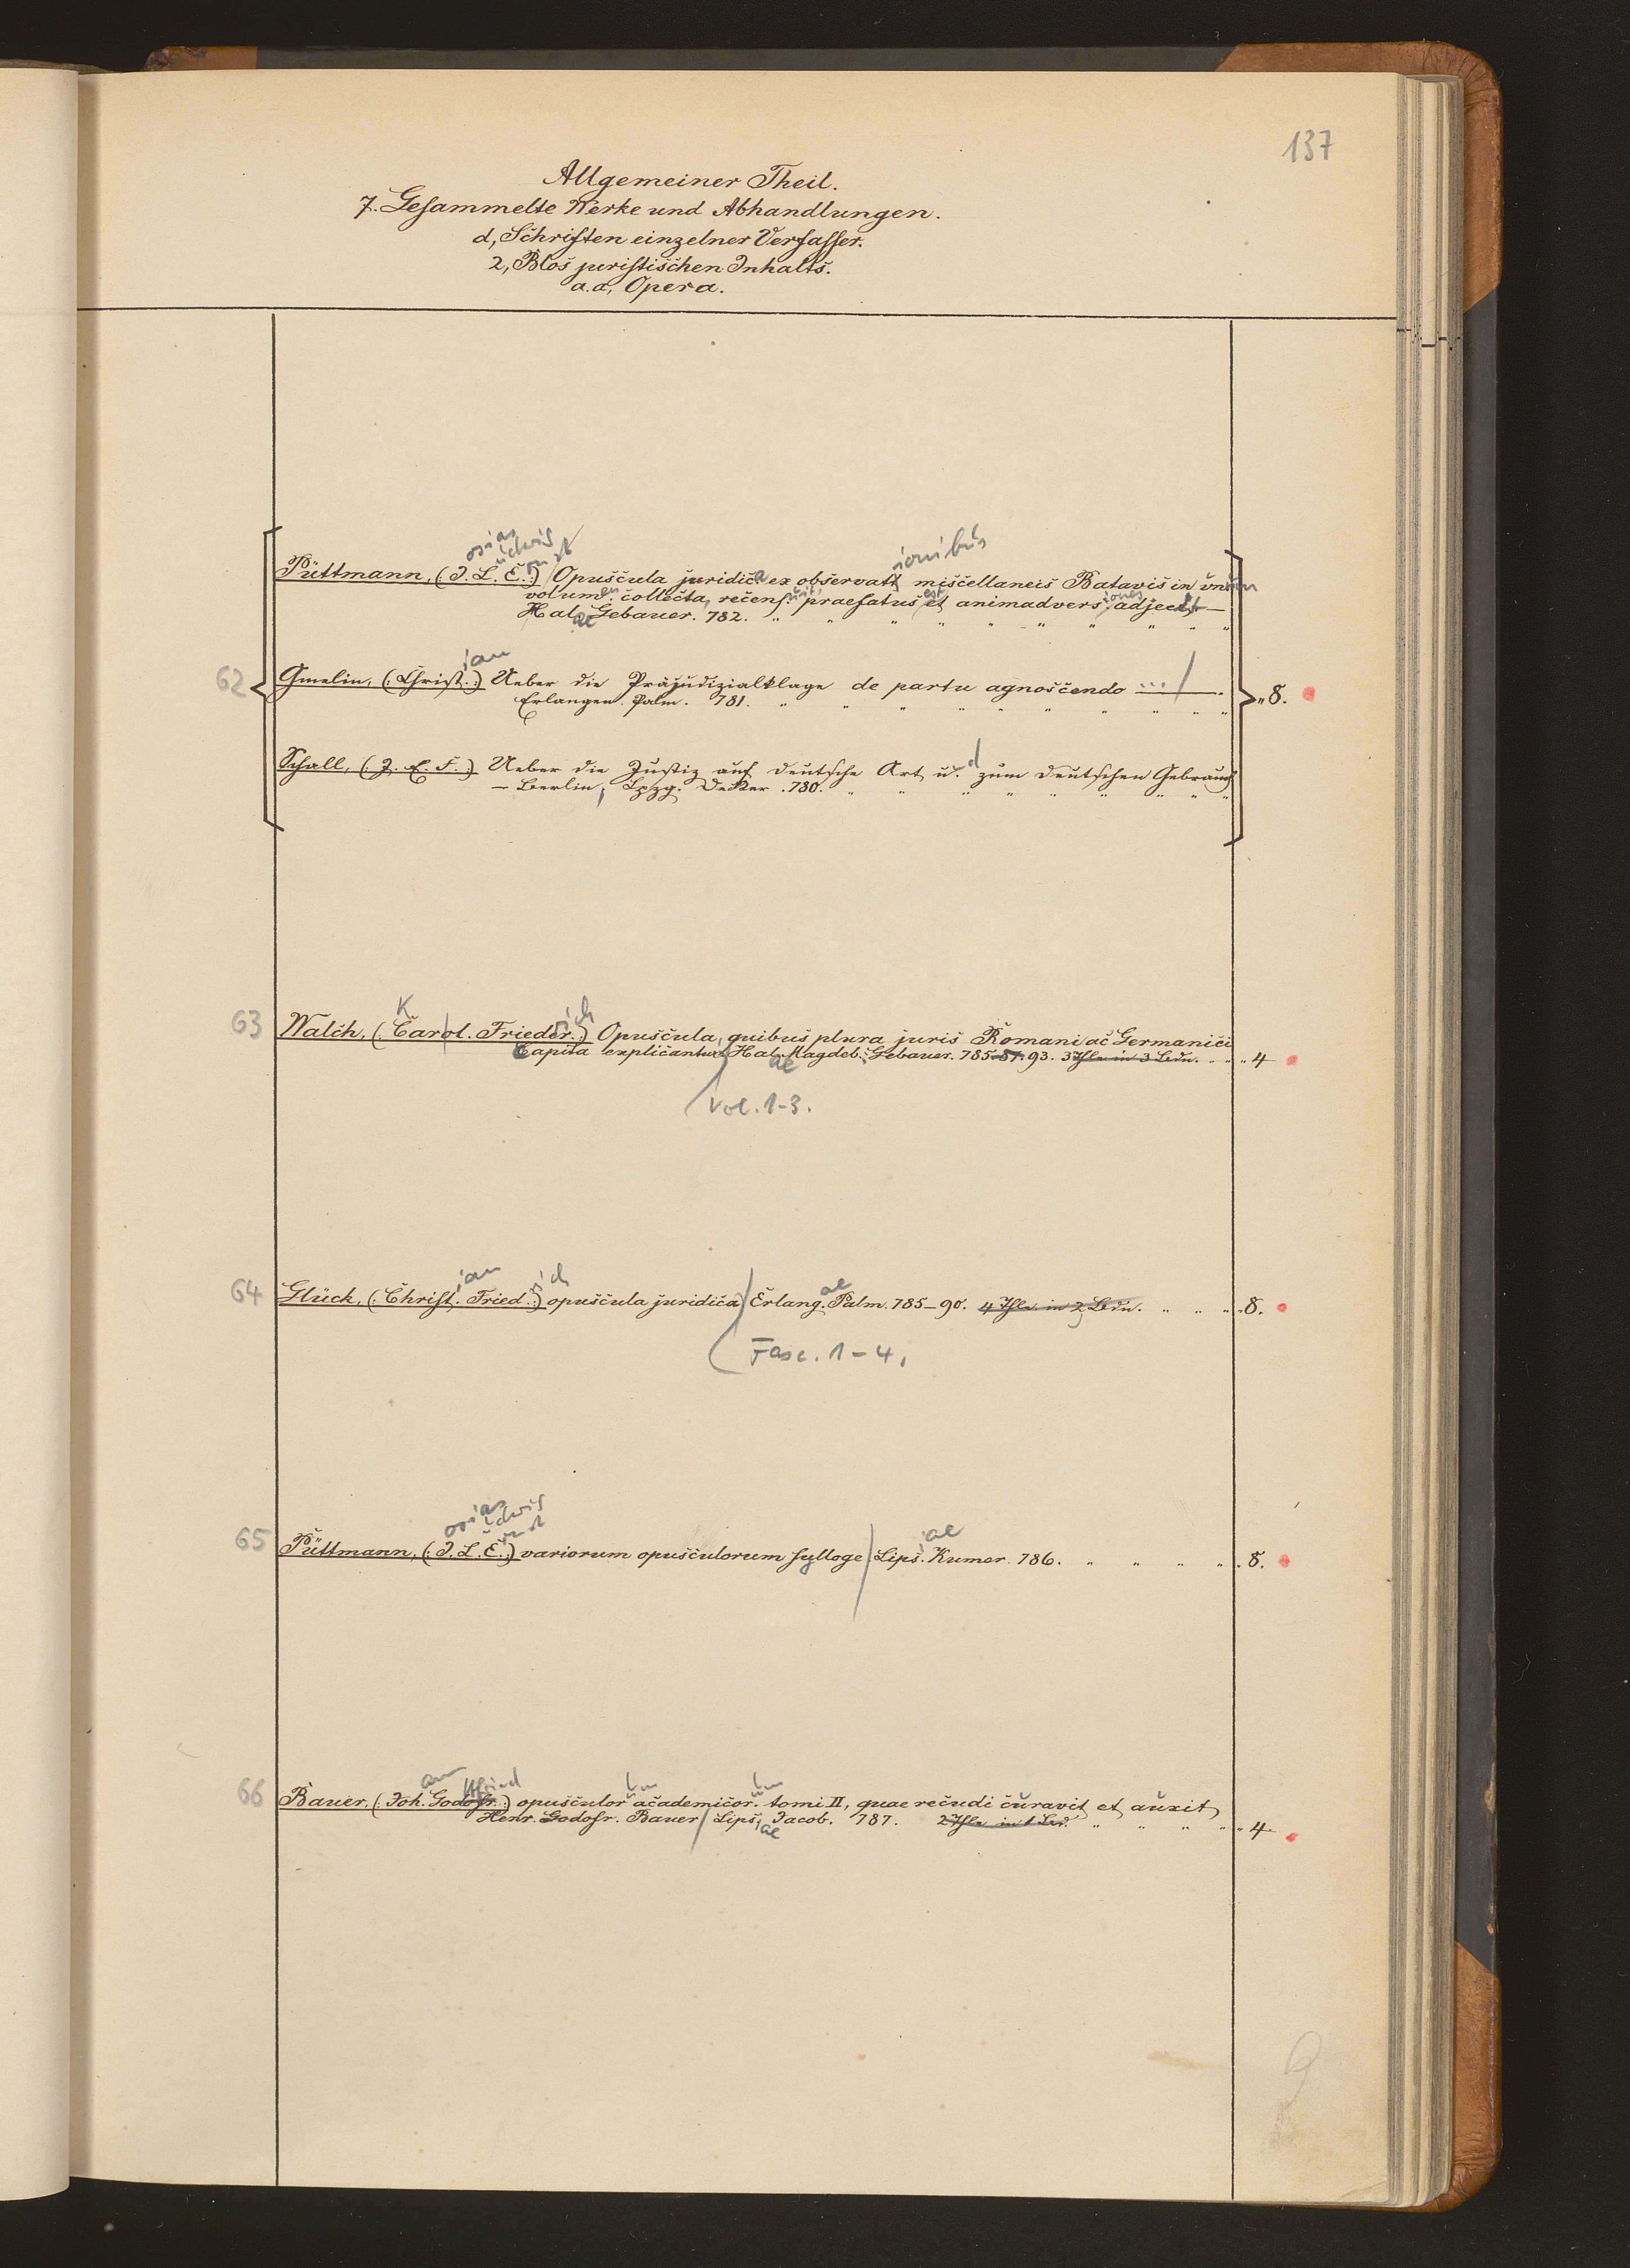 137
Allgemeiner Theil.
7. Gesammelte Werke und Abhandlungen.
d, Schriften einzelner Verfasser.
2, Blos juristischen Inhalts.
a.a, Opera.
osias udwig rnst ionibus
Püttmann, (: J. L. E. :) Opuscula juridica ex observatt miscellaneis Batavis in unum
volumen collecta, recens. uit, praefatus est et animadversiones adject —
Hal. ae Gebauer. 782. " " " " " " " " " "
ian
62 Gmelin, (: Christ. :) Ueber die Präjudizialklage de partu agnoscendo ... — . " 8.
Erlangen. Palm. 781. " " " " " " " " " "
Schall, (: J. E. F. :) Ueber die Justiz auf deutsche Art u. d zum deutschen Gebrauch
— Berlin, Lpzg. Decker. 780. " " " " " " " " "
K rich
63 Walch, (: Carol. Frieder. :) Opuscula, quibus plura juris Romani ac Germanici
Capita explicantur Hal. ae Magdeb. Gebauer. 785-87. 93. 3 Thle in 3 Bdn. " " " 4
Vol. 1-3.
ian rich ae
64 Glück, (: Christ. Fried. :) opuscula juridica Erlang. Palm. 785–90. 4 Thle. in 2 Bdn. " " " " 8.
Fasc. 1–4.
osias udwig rnst iae
65 Püttmann, (: J. L. E. :) variorum opusculorum sylloge Lips. Kumer. 786. " " " " " 8.
ann ttfried um um
66 Bauer, (: Joh. Godofr. :) opusculor academicor. tomi II, quae recudi curavit et auxit
Henr. Godofr. Bauer Lips. iae Jacob. 787. 2 Thle in 1 Bd. " " " " " 4.